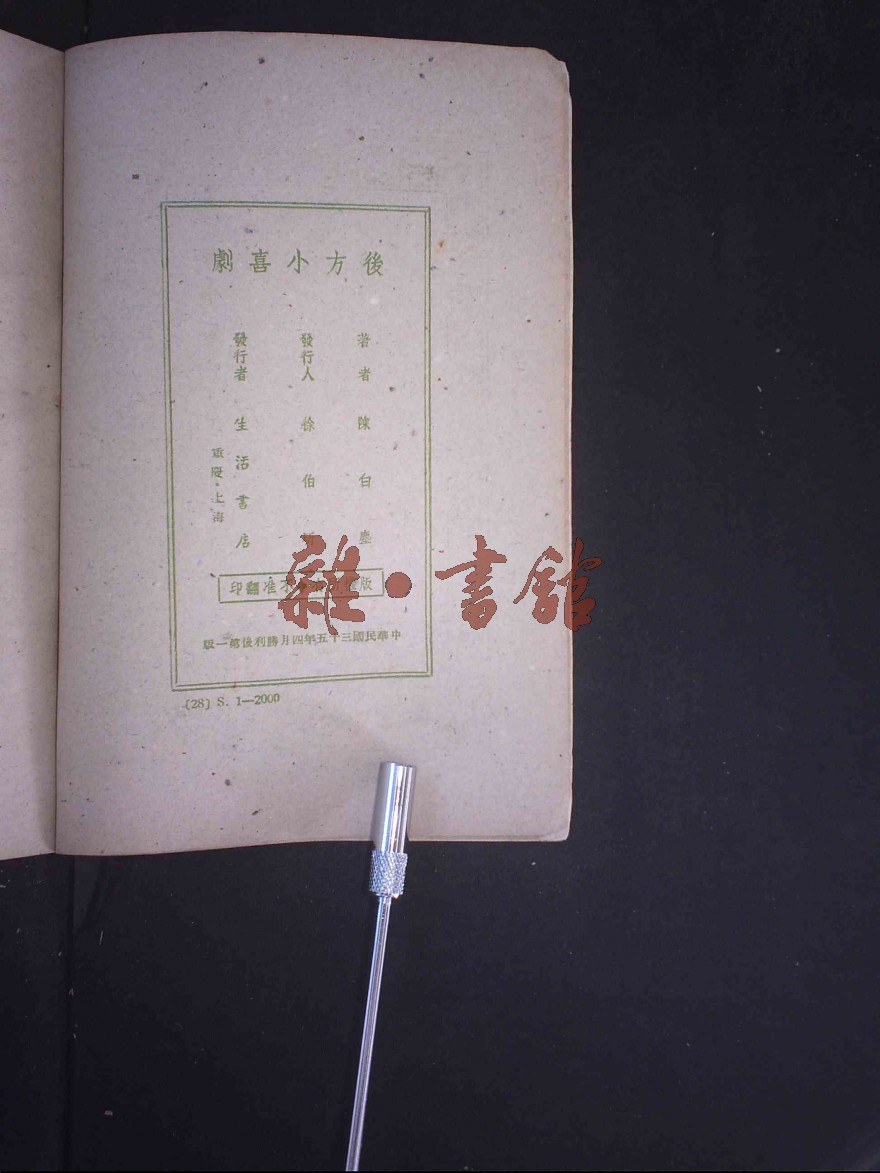 後方小喜劇
著者 陳白塵
發行人 徐伯
發行者 生活書店
重慶・上海
版權 不准翻印
中華民國三十五年四月勝利後第一版
〔28〕 S. 1—2000
雜・書館